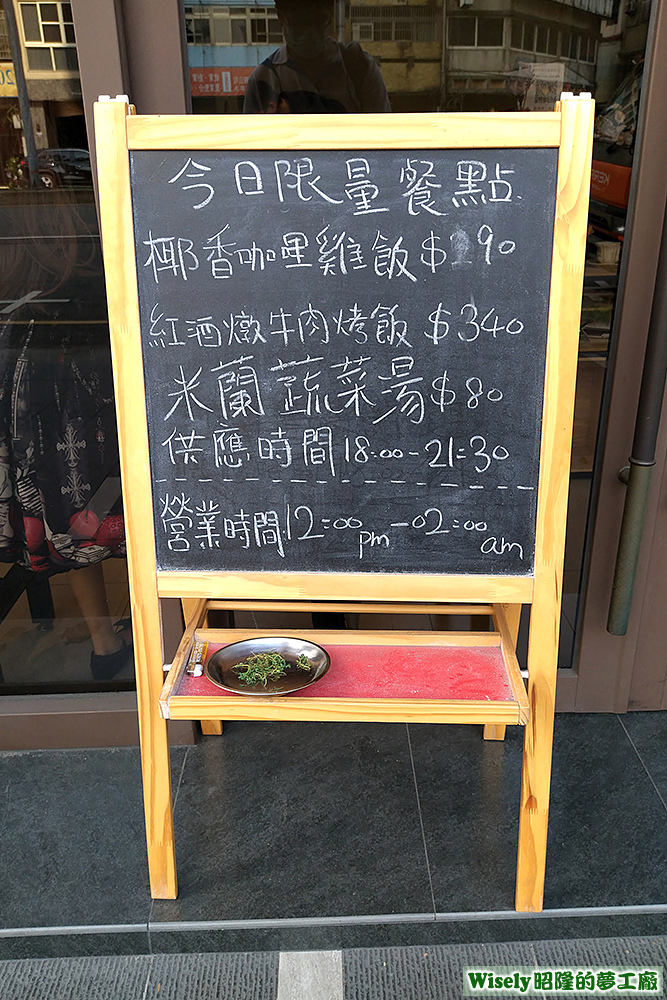 今日限量餐點
椰香咖哩雞飯 $290
紅酒燉牛肉烤飯 $340
米蘭蔬菜湯 $80
供應時間 18:00-21:30
營業時間 12:00 pm - 02:00 am
Wisely昭隆的夢工廠